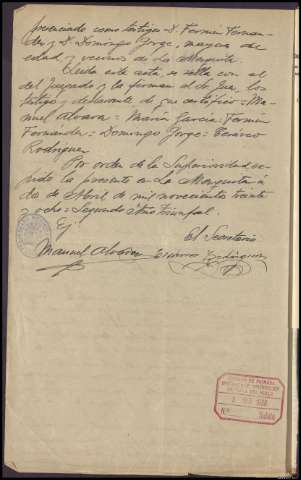 presenciado como testigos D. Fermin Fernan-
dez y D. Domingo Jorge, mayores de
edad y vecinos de La Mezquita.
Leida este acta, se sella con el
del Juzgado y la firman el Sr. Juez, los
testigos y declarante de que certifico = Ma-
nuel Alvarez = Maria Garcia = Fermin
Fernandez = Domingo Jorge = Ceráreo
Rodriguez
Por orden de la Superioridad ex-
pido la presente en La Mezquita á
dos de Abril de mil novecientos treinta
y ocho = Segundo Año Triunfal.
El Secretario
Manuel Alvarez
Rodriguez
Nº Salida